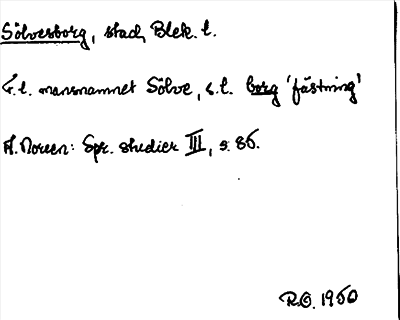 Sölvesborg, stad, Blek. l.
F.l. mansnamnet Sölve, s.l. borg 'fästning'
A. Noreen: Spr. studier III, s. 86.
R.O. 1950